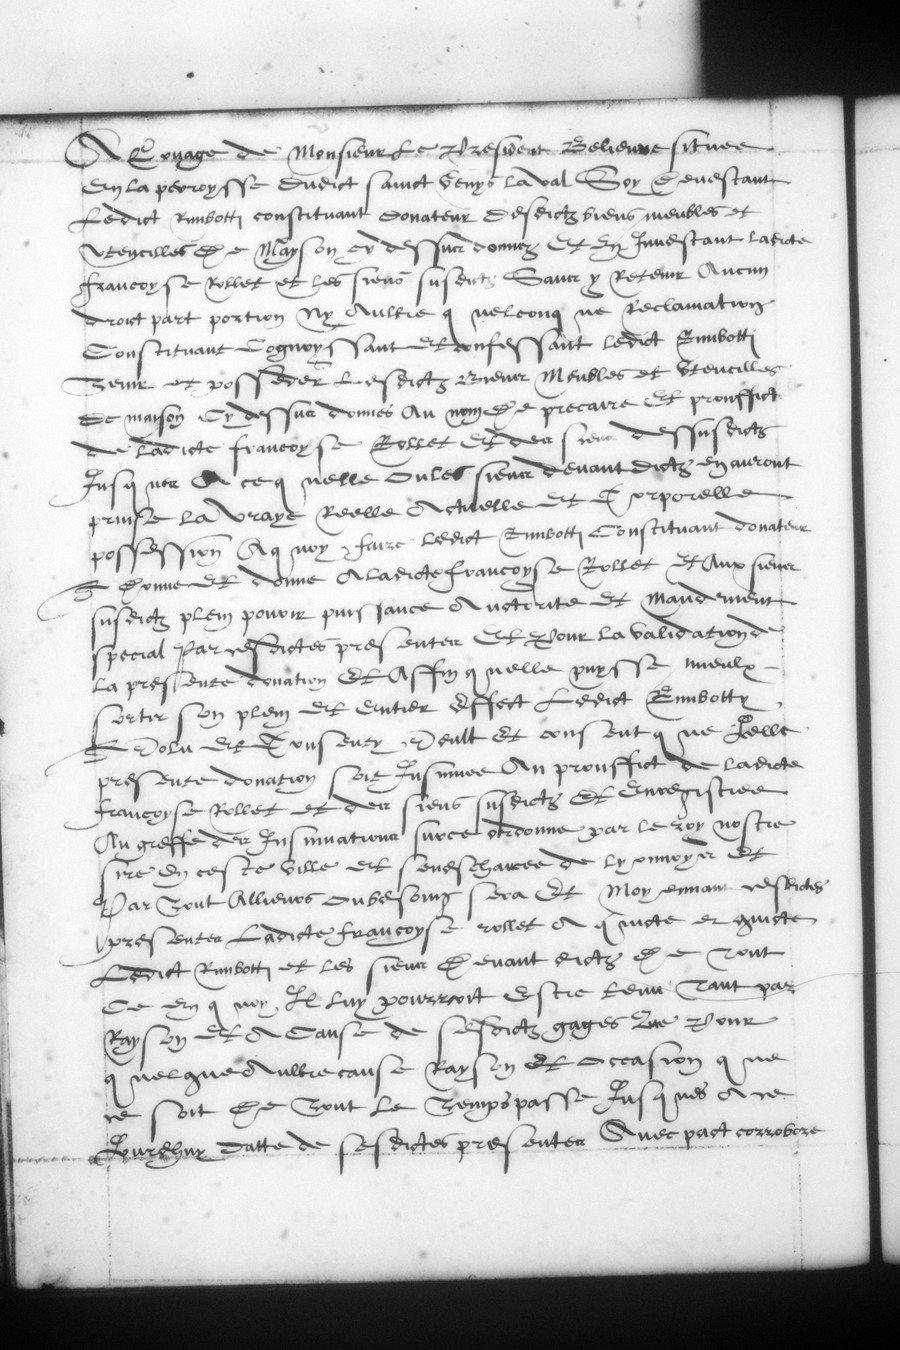 A Louage de Monsieur Le President Belieuvre situee
En la parroysse dudict sainct Genys laval Soy Devestant
Ledict Rimbotti constituant donateur Desdictz biens meubles et
Utencilles De Mayson cy dessus donnez Et En Investant ladicte
francoyse Rollet et les siens susdictz Sans y Retenir Aucun
droict part portion Ny Aultre quelconque Reclamation
Constituant Cognoyssant Et confessant ledict Rimbotti
Tenir et posseder Lesdictz Biens Meubles et Utencilles
De maison Cy dessus donnes Au nom De precaire Et prouffict
de ladicte francoyse Rollet Et des siens dessusdictz
Jusques A ce quelle Ou les siens devant dictz en auront
prinse la vraye Reelle Actuelle Et Corporelle
possession A quoy faire ledict Rimbotti Constituant donateur
donne Et donne A ladicte francoyse Rollet Et Aux siens
susdictz plein pouvoir puissance Auctorite Et Mandement
special Par cesdictes presentes Et Pour la validation de
la presente donation Et Affin quelle puysse mieulx
sortir son plein Et Entier Effect Ledict Rimbotty
A Volu Et Consenty Veult Et consent que Icelle
presente donation soit Insinuee Au prouffict de ladicte
francoyse Rollet et des siens susdictz Et Enregistree
Au greffe des Insinuations sur ce Ordonne par le Roy nostre
sire En ceste Ville Et seneschaucee de Lyonnoys Et
Par Tout Allieurs ou besoing sera Et Moyennant cesdictes
presentes Ladicte francoyse rollet A quicte et quicte
Ledict Rimbotti et les siens Devant dictz De Tout
Ce En quoy Il luy pourroit Estre tenu Tant par
Rayson Et A Cause de sesdictz gages Que Pour
quelque Aultre cause Rayson Et Occasion que
ce soit De Tout le Temps passe Jusques A ce
Jourdhuy Datte de sesdictes presentes Avec pact corrobore